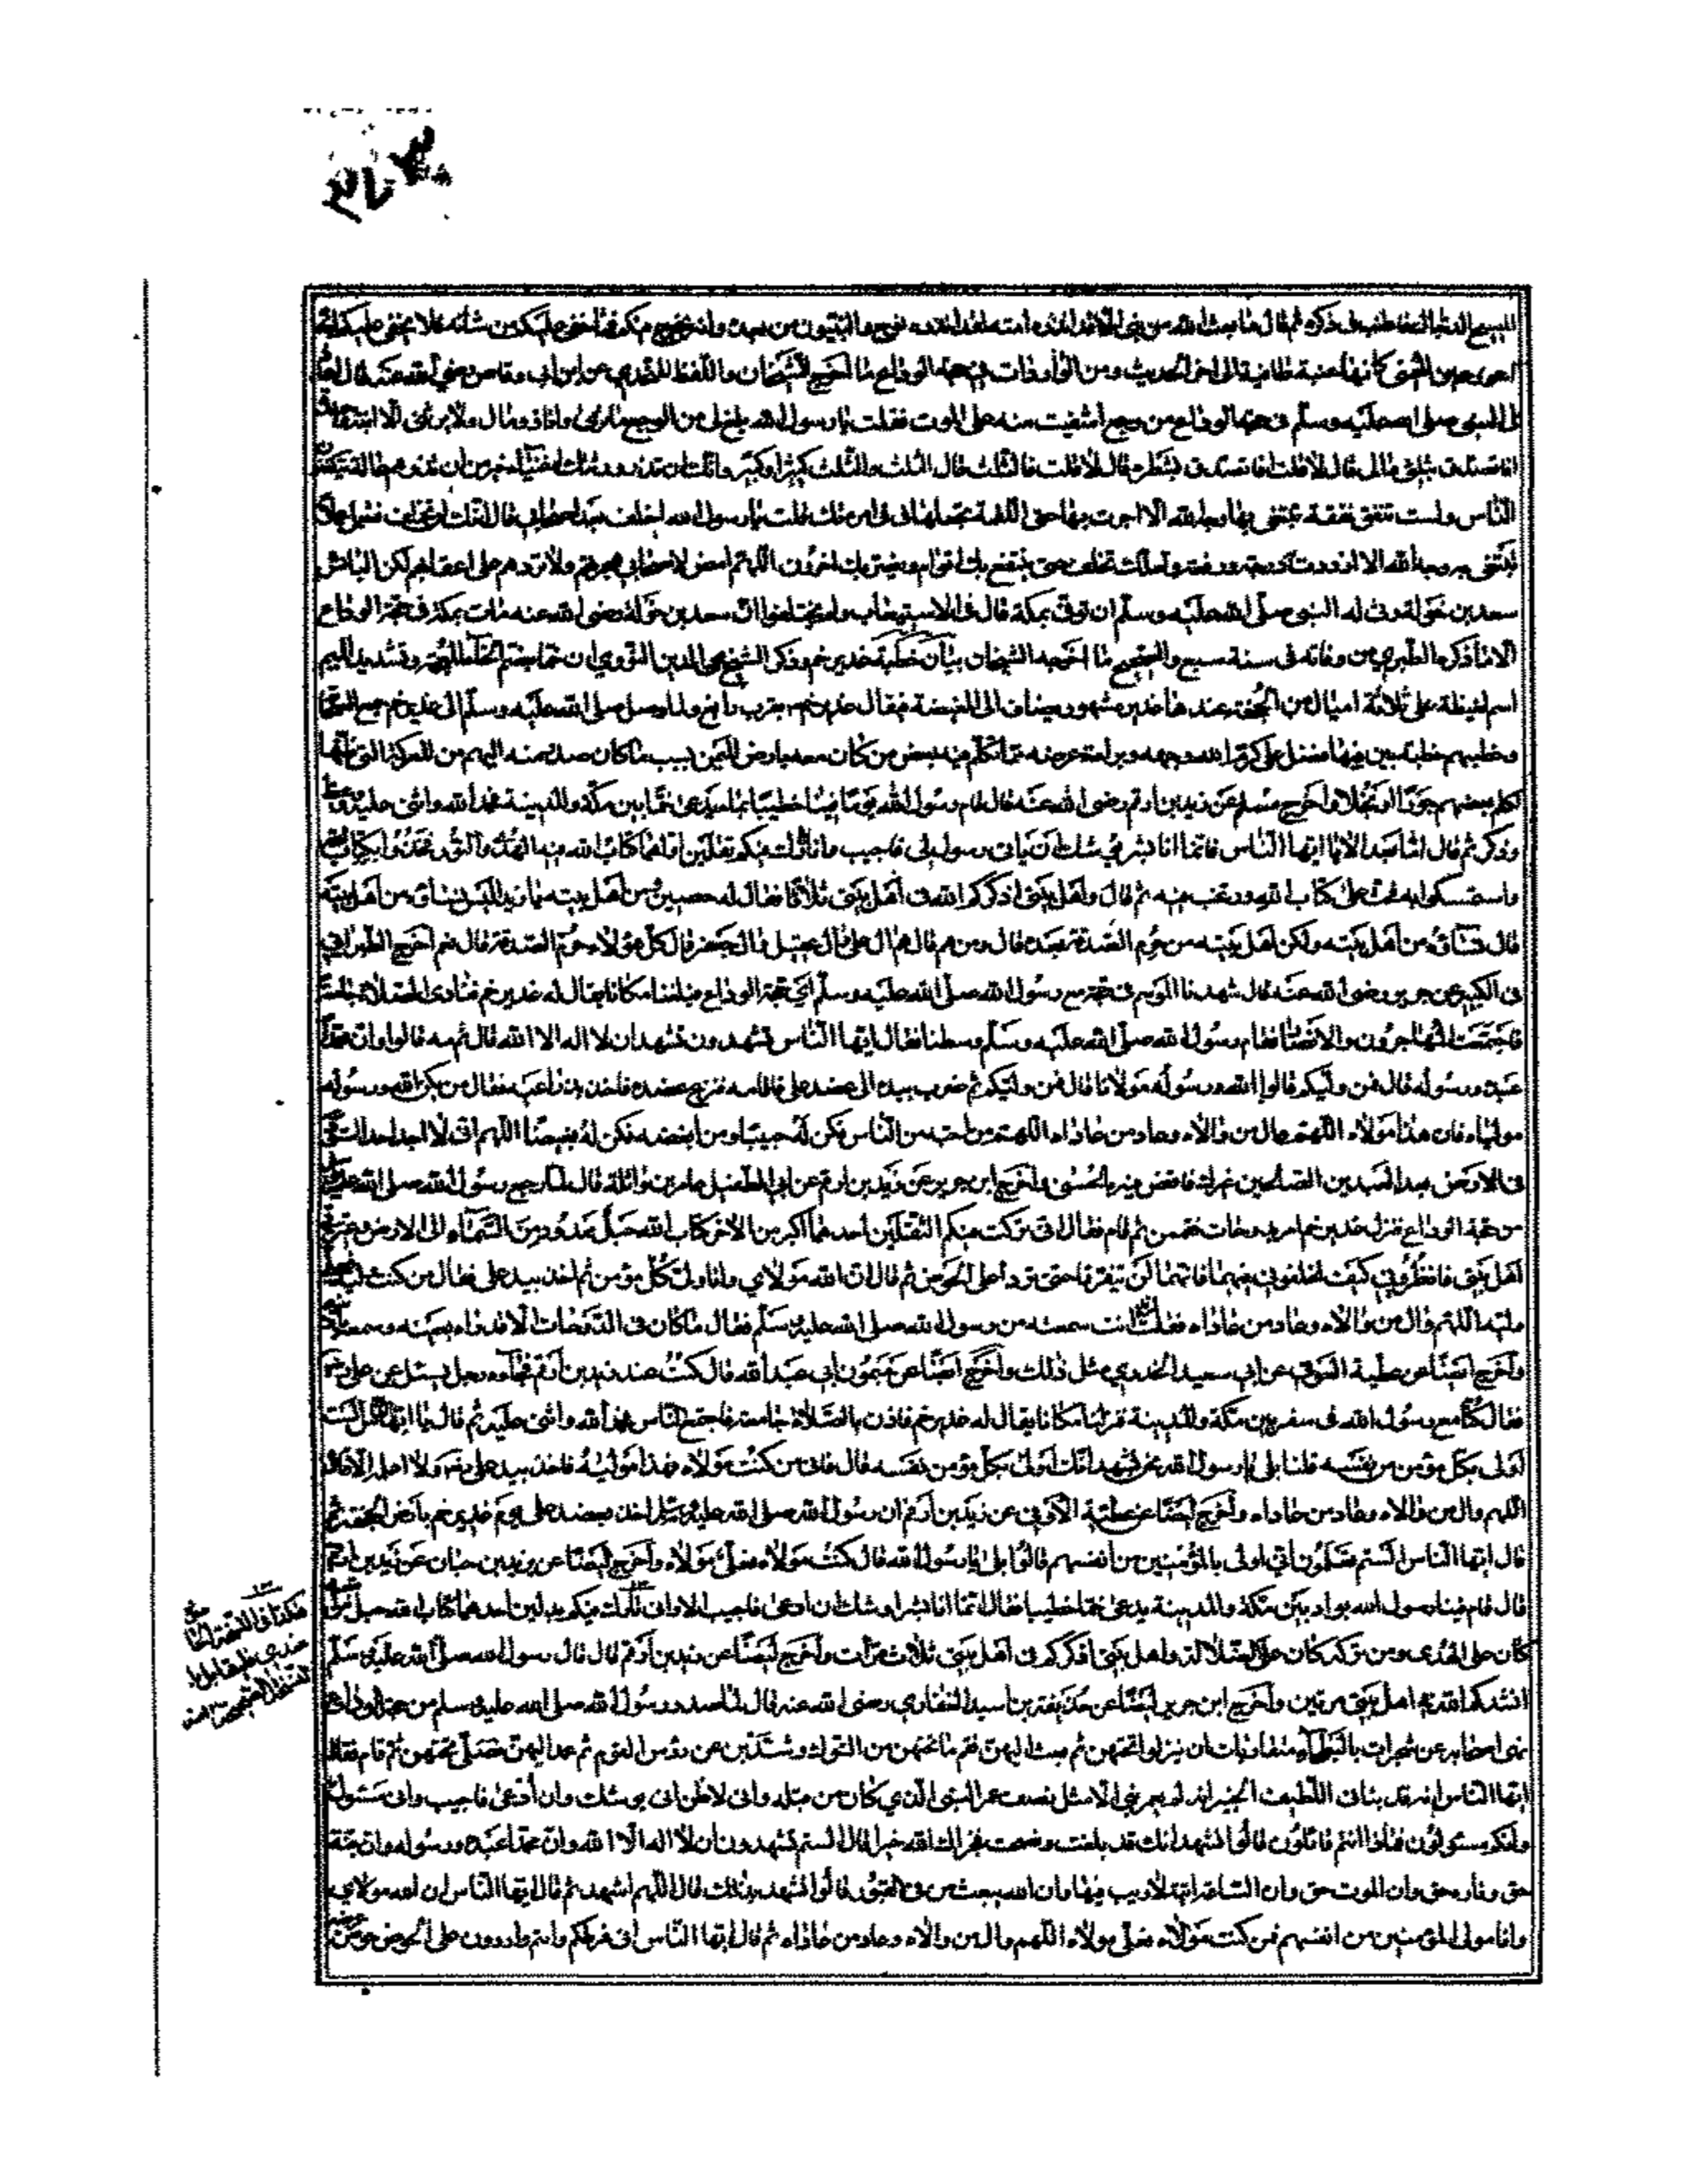 المسيح الدجال فاطنب في ذكره ثم قال ما بعث الله من نبي الا قد انذره امته لقد انذره نوح والنبيون من بعده وانه يخرج فيكم فما خفي عليكم من شأنه فلا يخفى عليكم انه
اعور عين اليمنى كأنها عنبة طافية الى اخر الحديث ومن الواردات في حجة الوداع ما اخرج الشيخان واللفظ للترمذي عن ابن ابي وقاص رضي الله عنه قال
النبي صلى الله عليه وسلم في حجة الوداع من وجع اشفيت منه على الموت فقلت يا رسول الله بلغ بي من الوجع ما ترى وانا ذو مال ولا يرثني الا ابنة
افاتصدق بثلثي مالي قال لا قلت افاتصدق بشطره قال لا قلت فالثلث قال الثلث والثلث كثير او كبير وانك ان تذر ورثتك اغنياء خير من ان تذرهم عالة يتكففون
الناس ولست تنفق نفقة تبتغي بها وجه الله الا اجرت بها حتى اللقمة تجعلها في في امرءتك قلت يا رسول الله اخلف بعد اصحابي قال انك لن تخلف فتعمل عملا
تبتغي به وجه الله الا ازددت درجة ورفعة ولعلك تخلف حتى ينتفع بك اقوام ويضر بك اخرون اللهم امض لاصحابي هجرتهم ولا تردهم على اعقابهم لكن البائس
سعد بن خولة رثى له النبي صلى الله عليه وسلم ان توفي بمكة قال في الاستيعاب ولم يختلفوا ان سعد بن خولة رضي الله عنه مات بمكة في حجة الوداع
الا ما ذكره الطبري من وفاته في سنة سبع والصحيح ما اخرجه الشيخان بيان خطبة غدير خم وذكر الشيخ محي الدين النووي ان خما بضم الخاء المعجمة وتشديد الميم
اسم لغيظة على ثلاثة اميال من الجحفة عندها غدير مشهور يضاف الى الغيضة فيقال غدير خم بقرب رابغ ولما وصل صلى الله عليه وسلم الى غدير خم جمع الصحابة
وخطبهم خطبة بين فيها فضل علي كرم الله وجهه وبراءة عرضه مما تكلم فيه بعض من كان معه بارض اليمن بسبب ما كان صدر منه اليهم من المعدلة التي ظنها
بعضهم جورا او بخلا واخرج مسلم عن زيد بن ارقم رضي الله عنه قال قام رسول الله يوما فينا خطيبا بماء يدعى خما بين مكة والمدينة فحمد الله واثنى عليه ووعظ
وذكر ثم قال اما بعد الا يا ايها الناس فانما انا بشر يوشك ان يأتي رسول ربي فاجيب وانا تارك فيكم ثقلين اولهما كتاب الله فيه الهدى والنور فخذوا بكتاب الله
واستمسكوا به فحث على كتاب الله ورغب فيه ثم قال واهل بيتي اذكركم الله في اهل بيتي ثلاثا فقال له حصين ومن اهل بيته يا زيد اليس نساؤه من اهل بيته
قال نساؤه من اهل بيته ولكن اهل بيته من حرم الصدقة بعده قال ومن هم قال هم ال علي وال عقيل وال جعفر قال كل هؤلاء حرم الصدقة قال نعم اخرج الطبراني
في الكبير عن جرير رضي الله عنه قال شهدنا الموسم في حجة مع رسول الله صلى الله عليه وسلم اي حجة الوداع فبلغنا مكانا يقال له غدير خم فنادى الصلاة جامعة
فاجتمعت المهاجرون والانصار فقام رسول الله صلى الله عليه وسلم وسطنا فقال ايها الناس تشهدون نشهد ان لا اله الا الله قال ثم مه قالوا وان محمدا
عبده ورسوله قال فمن وليكم قالوا الله ورسوله مولانا قال فمن وليكم ثم ضرب بيده الى عضد علي فاقامه فنزع عضده فاخذ بذراعيه فقال من يكن الله ورسوله
مولياه فان هذا مولاه اللهم وال من والاه وعاد من عاداه اللهم من احبه من الناس فكن له حبيبا ومن ابغضه فكن له مبغضا اللهم اني لا اجد احدا استودعه
في الارض بعد العبدين الصالحين غيرك فاقض فيه بالحسنى واخرج ابن جرير عن زيد بن ارقم عن ابي الطفيل عامر بن واثلة قال لما رجع رسول الله صلى الله عليه وسلم
من حجة الوداع فنزل غدير خم امر بدوحات فقممن ثم قام فقال اني تركت فيكم الثقلين احدهما اكبر من الاخر كتاب الله حبل ممدود من السماء الى الارض وعترتي
اهل بيتي فانظروني كيف تخلفوني فيهما فانهما لن يتفرقا حتى يردا علي الحوض ثم قال ان الله مولاي وانا ولي كل مؤمن ثم اخذ بيد علي فقال من كنت وليه
وليه اللهم وال من والاه وعاد من عاداه فقلت انت سمعته من رسول الله صلى الله عليه وسلم فقال ما كان في الدوحات الا قد راه بعينه وسمعه
واخرج ايضا عن عطية العوفي عن ابي سعيد الخدري مثل ذلك واخرج ايضا عن ميمون ابي عبد الله قال كنت عند زيد بن ارقم فجاءه رجل يسئل عن علي
فقال كنا مع رسول الله في سفر بين مكة والمدينة فنزلنا مكانا يقال له غدير خم فاذن بالصلاة جامعة فاجتمع الناس فحمد الله واثنى عليه ثم قال يا ايها الناس الست
اولى بكل مؤمن من نفسه قلنا بلى يا رسول الله نحن نشهد انك اولى بكل مؤمن من نفسه قال فاني من كنت مولاه فهذا موليه فاخذ بيد علي ولا اعلم الا قال
اللهم وال من والاه وعاد من عاداه واخرج ايضا عن عطية العوفي عن زيد بن ارقم ان رسول الله صلى الله عليه وسلم اخذ بعضد علي يوم غدير خم بارض الجحفة ثم
قال ايها الناس الستم تعلمون اني اولى بالمؤمنين من انفسهم قالوا بلى يا رسول الله قال فمن كنت مولاه فعلي مولاه واخرج ايضا عن يزيد بن حيان عن زيد بن ارقم
قال قام فينا رسول الله بواد بين مكة والمدينة يدعى خما خطيبا فقال انما انا بشر اوشك ان ادعى فاجيب الا واني تارك فيكم ثقلين احدهما كتاب الله حبل من
كان على الهدى ومن تركه كان على الضلالة واهل بيتي اذكركم في اهل بيتي ثلاث مرات واخرج ايضا عن زيد بن ارقم قال قال رسول الله صلى الله عليه وسلم
انشدكم الله في اهل بيتي مرتين واخرج ابن جرير ايضا عن حذيفة بن اسيد الغفاري رضي الله عنه قال لما صدر رسول الله صلى الله عليه وسلم من حجة الوداع
نهى اصحابه عن شجرات بالبطحاء متقاربات ان ينزلوا تحتهن ثم بعث اليهن فقم ما تحتهن من الشوك وشذبن عن رؤس القوم ثم عمد اليهن فصلى تحتهن ثم قام فقال
ايها الناس انه قد نبأني اللطيف الخبير انه لم يعمر نبي الا مثل نصف عمر النبي الذي كان من قبله واني لاظن اني يوشك وان ادعى فاجيب واني مسئول
وانكم مسئولون فماذا انتم قائلون قالوا نشهد انك قد بلغت ونصحت فجزاك الله خيرا قال الستم تشهدون ان لا اله الا الله وان محمدا عبده ورسوله وان جنته
حق وناره حق وان الموت حق وان الساعة اتية لا ريب فيها وان الله يبعث من في القبور قالوا نشهد بذلك قال اللهم اشهد ثم قال ايها الناس ان الله مولاي
وانا مولى المؤمنين من انفسهم فمن كنت مولاه فعلي مولاه اللهم وال من والاه وعاد من عاداه ثم قال ايها الناس اني فرطكم وانتم واردون علي الحوض حوض
هكذا في النسخة التي
عندي